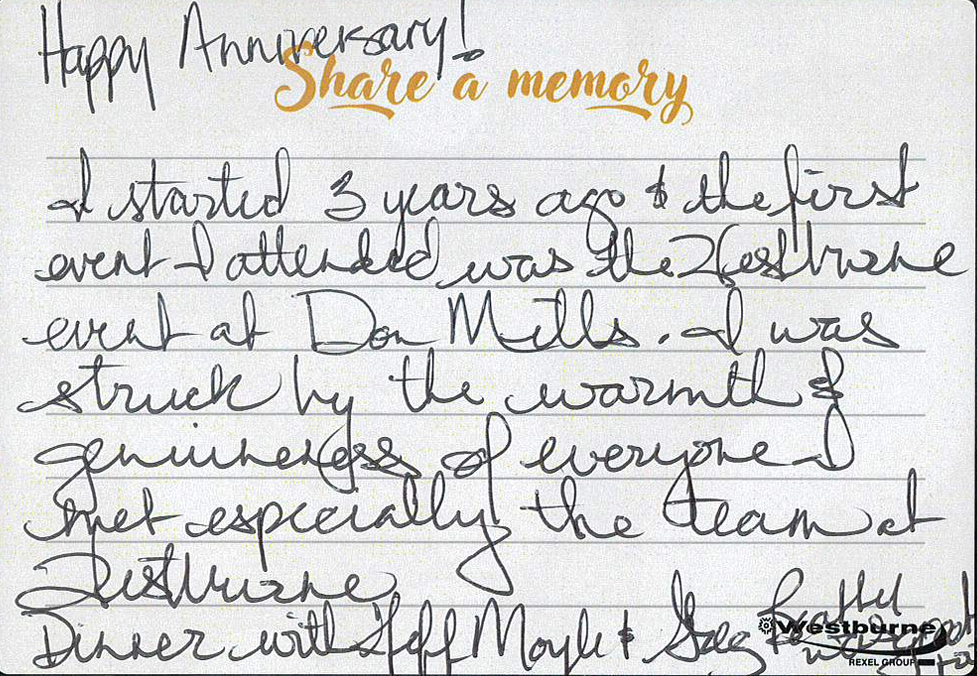 Happy Anniversary!
Share a memory
I started 3 years ago & the first
event I attended was the Westburne
event at Don Mills. I was
struck by the warmth &
genuineness of everyone I
met especially the team at
Westburne
Dinner with Jeff Moyle & Greg
Westburne
REXEL GROUP